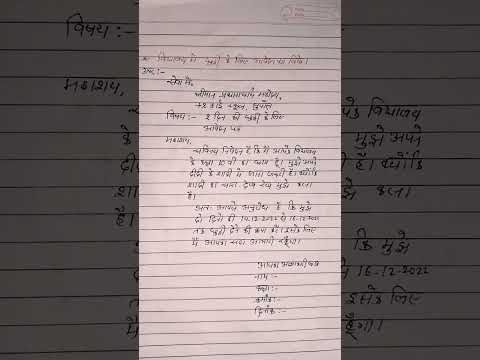 विषय :-
* विद्यालय में छुट्टी के लिए आवेदन पत्र लिखें।
उत्तर :-
सेवा में,
श्रीमान प्रधानाचार्य महोदय,
+2 हाई स्कूल, सुपौल
विषय :- 2 दिन की छुट्टी के लिए
आवेदन पत्र
महाशय,
सविनय निवेदन है कि मैं आपके विद्यालय
के कक्षा 10 वीं का छात्र हूँ। मुझे अपने
दीदी के शादी में जाना जरूरी है। क्योंकि
शादी का सारा देख रेख मुझे करना
है।
अतः आपसे अनुरोध है कि मुझे
दो दिनों की 14-12-2022 से 16-12-2022
तक छुट्टी देने की कृपा करें। इसके लिए
मैं आपका सदा आभारी रहूँगा।
आपका आज्ञाकारी छात्र
नाम :-
कक्षा :-
क्रमांक :-
दिनांक :-
महाशय,
के
दीदी
शा
है।
मै
पके विद्यालय
मुझे अपने
है। क्योंकि
करना
कि मुझे
16-12-2022
इसके लिए
हूँगा।